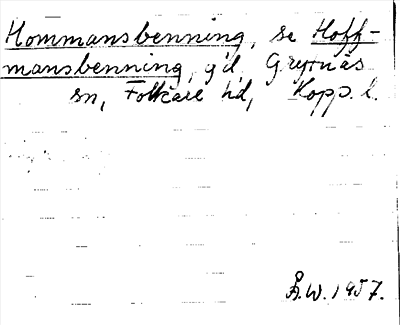 Hommansbenning, se Hoff-
mansbenning, gd, Grytnäs
sn, Folkare hd, Kopp. l.
Å.W. 1957.